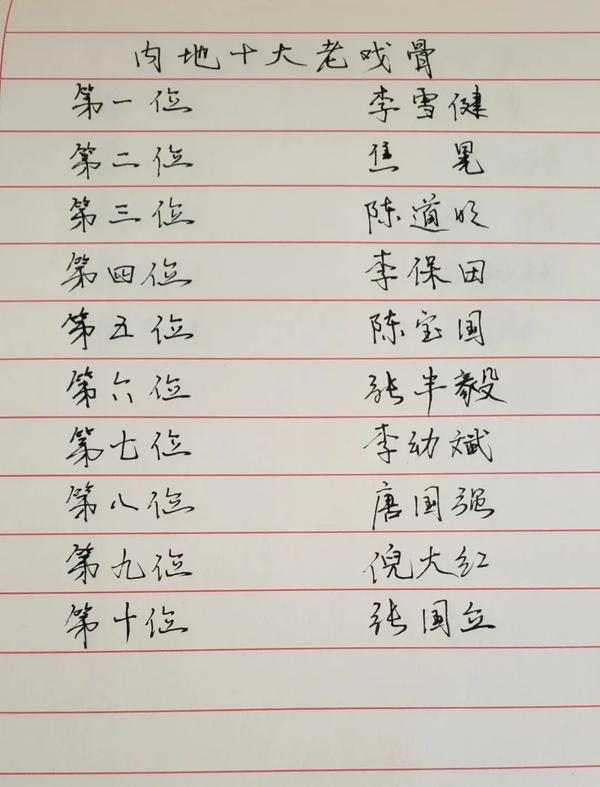 内地十大老戏骨
第一位 李雪健
第二位 焦晃
第三位 陈道明
第四位 李保田
第五位 陈宝国
第六位 张丰毅
第七位 李幼斌
第八位 唐国强
第九位 倪大红
第十位 张国立